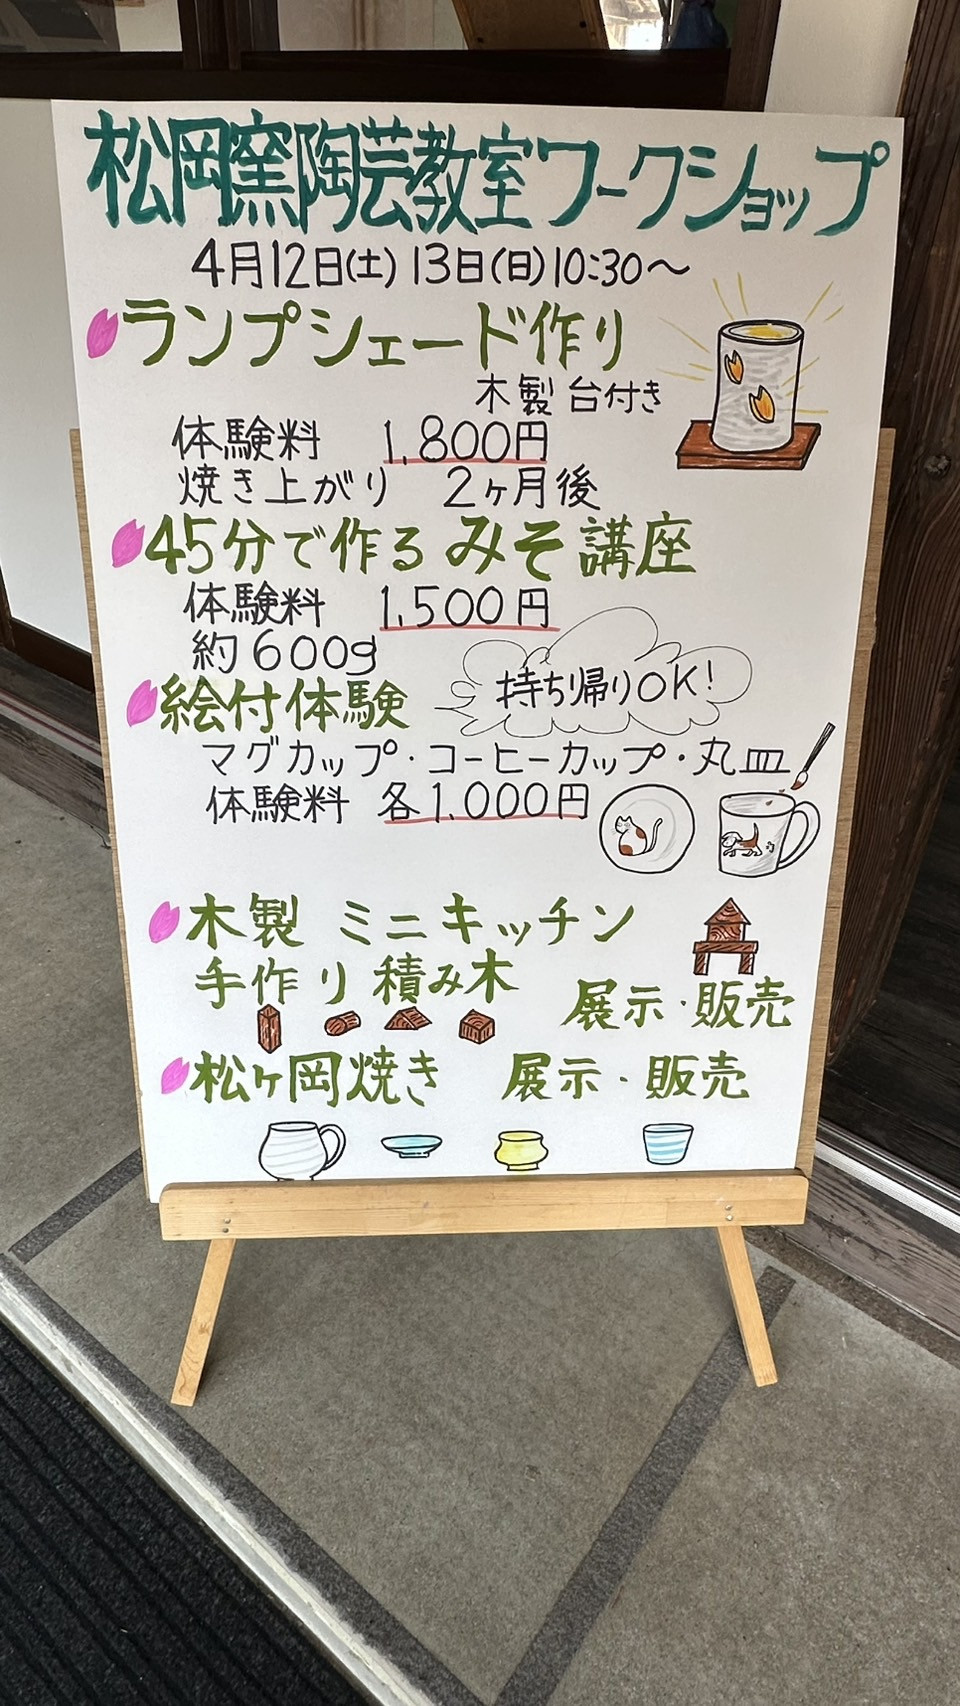 松岡窯陶芸教室ワークショップ
4月12日(土) 13日(日) 10:30〜
ランプシェード作り
木製 台付き
体験料 1,800円
焼き上がり 2ヶ月後
45分で作る みそ講座
体験料 1,500円
約600g
持ち帰りOK!
絵付体験
マグカップ・コーヒーカップ・丸皿
体験料 各1,000円
木製 ミニキッチン
手作り 積み木
展示・販売
松ヶ岡焼き 展示・販売